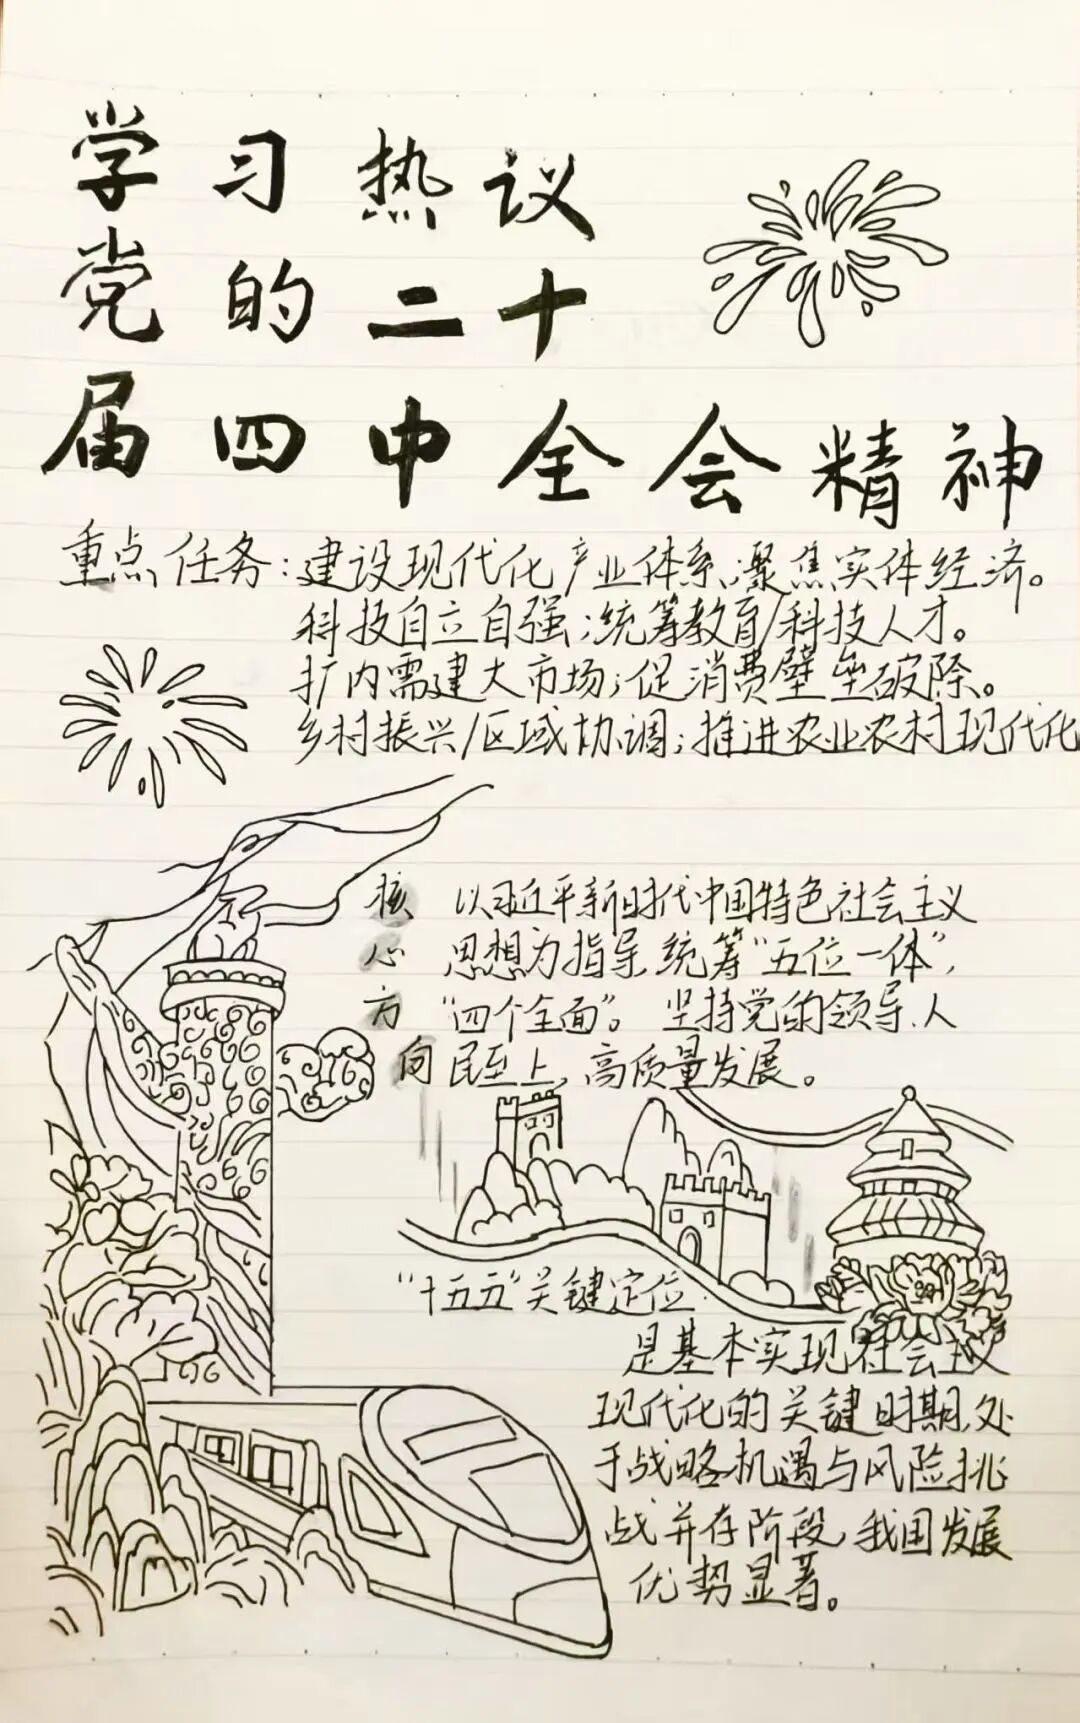 学习热议
党的二十
届四中全会精神
重点任务：建设现代化产业体系；聚焦实体经济。
科技自立自强；统筹教育/科技人才。
扩内需建大市场；促消费壁垒破除。
乡村振兴/区域协调；推进农业农村现代化
核心方向
以习近平新时代中国特色社会主义
思想为指导，统筹“五位一体”，
“四个全面”。坚持党的领导、人
民至上，高质量发展。
“十五五”关键定位：
是基本实现社会主义
现代化的关键时期，处
于战略机遇与风险挑
战并存阶段，我国发展
优势显著。